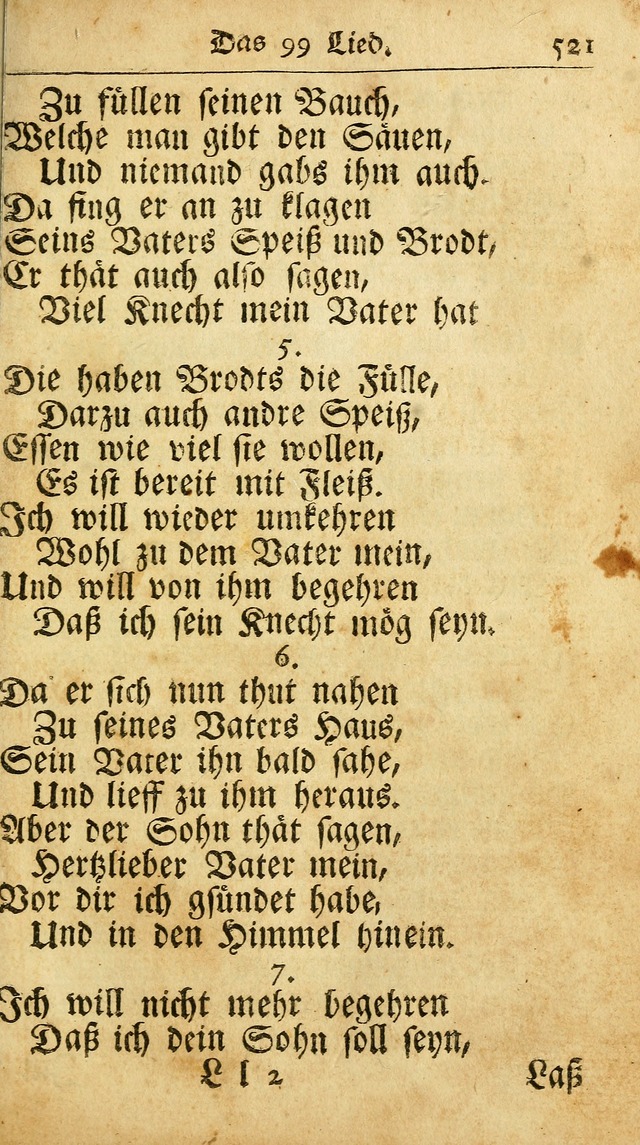 Das 99 Lied. 521
Zu füllen seinen Bauch,
Welche man gibt den Säuen,
Und niemand gabs ihm auch.
Da fing er an zu klagen
Seins Vaters Speiß und Brodt,
Er thät auch also sagen,
Viel Knecht mein Vater hat
5.
Die haben Brodts die Fülle,
Darzu auch andre Speiß,
Essen wie viel sie wollen,
Es ist bereit mit Fleiß.
Ich will wieder umkehren
Wohl zu dem Vater mein,
Und will von ihm begehren
Daß ich sein Knecht mög seyn.
6.
Da er sich nun thut nahen
Zu seines Vaters Haus,
Sein Vater ihn bald sahe,
Und lieff zu ihm heraus.
Aber der Sohn thät sagen,
Hertzlieber Vater mein,
Vor dir ich gsündet habe,
Und in den Himmel hinein.
7.
Ich will nicht mehr begehren
Daß ich dein Sohn soll seyn,
L l 2 Laß